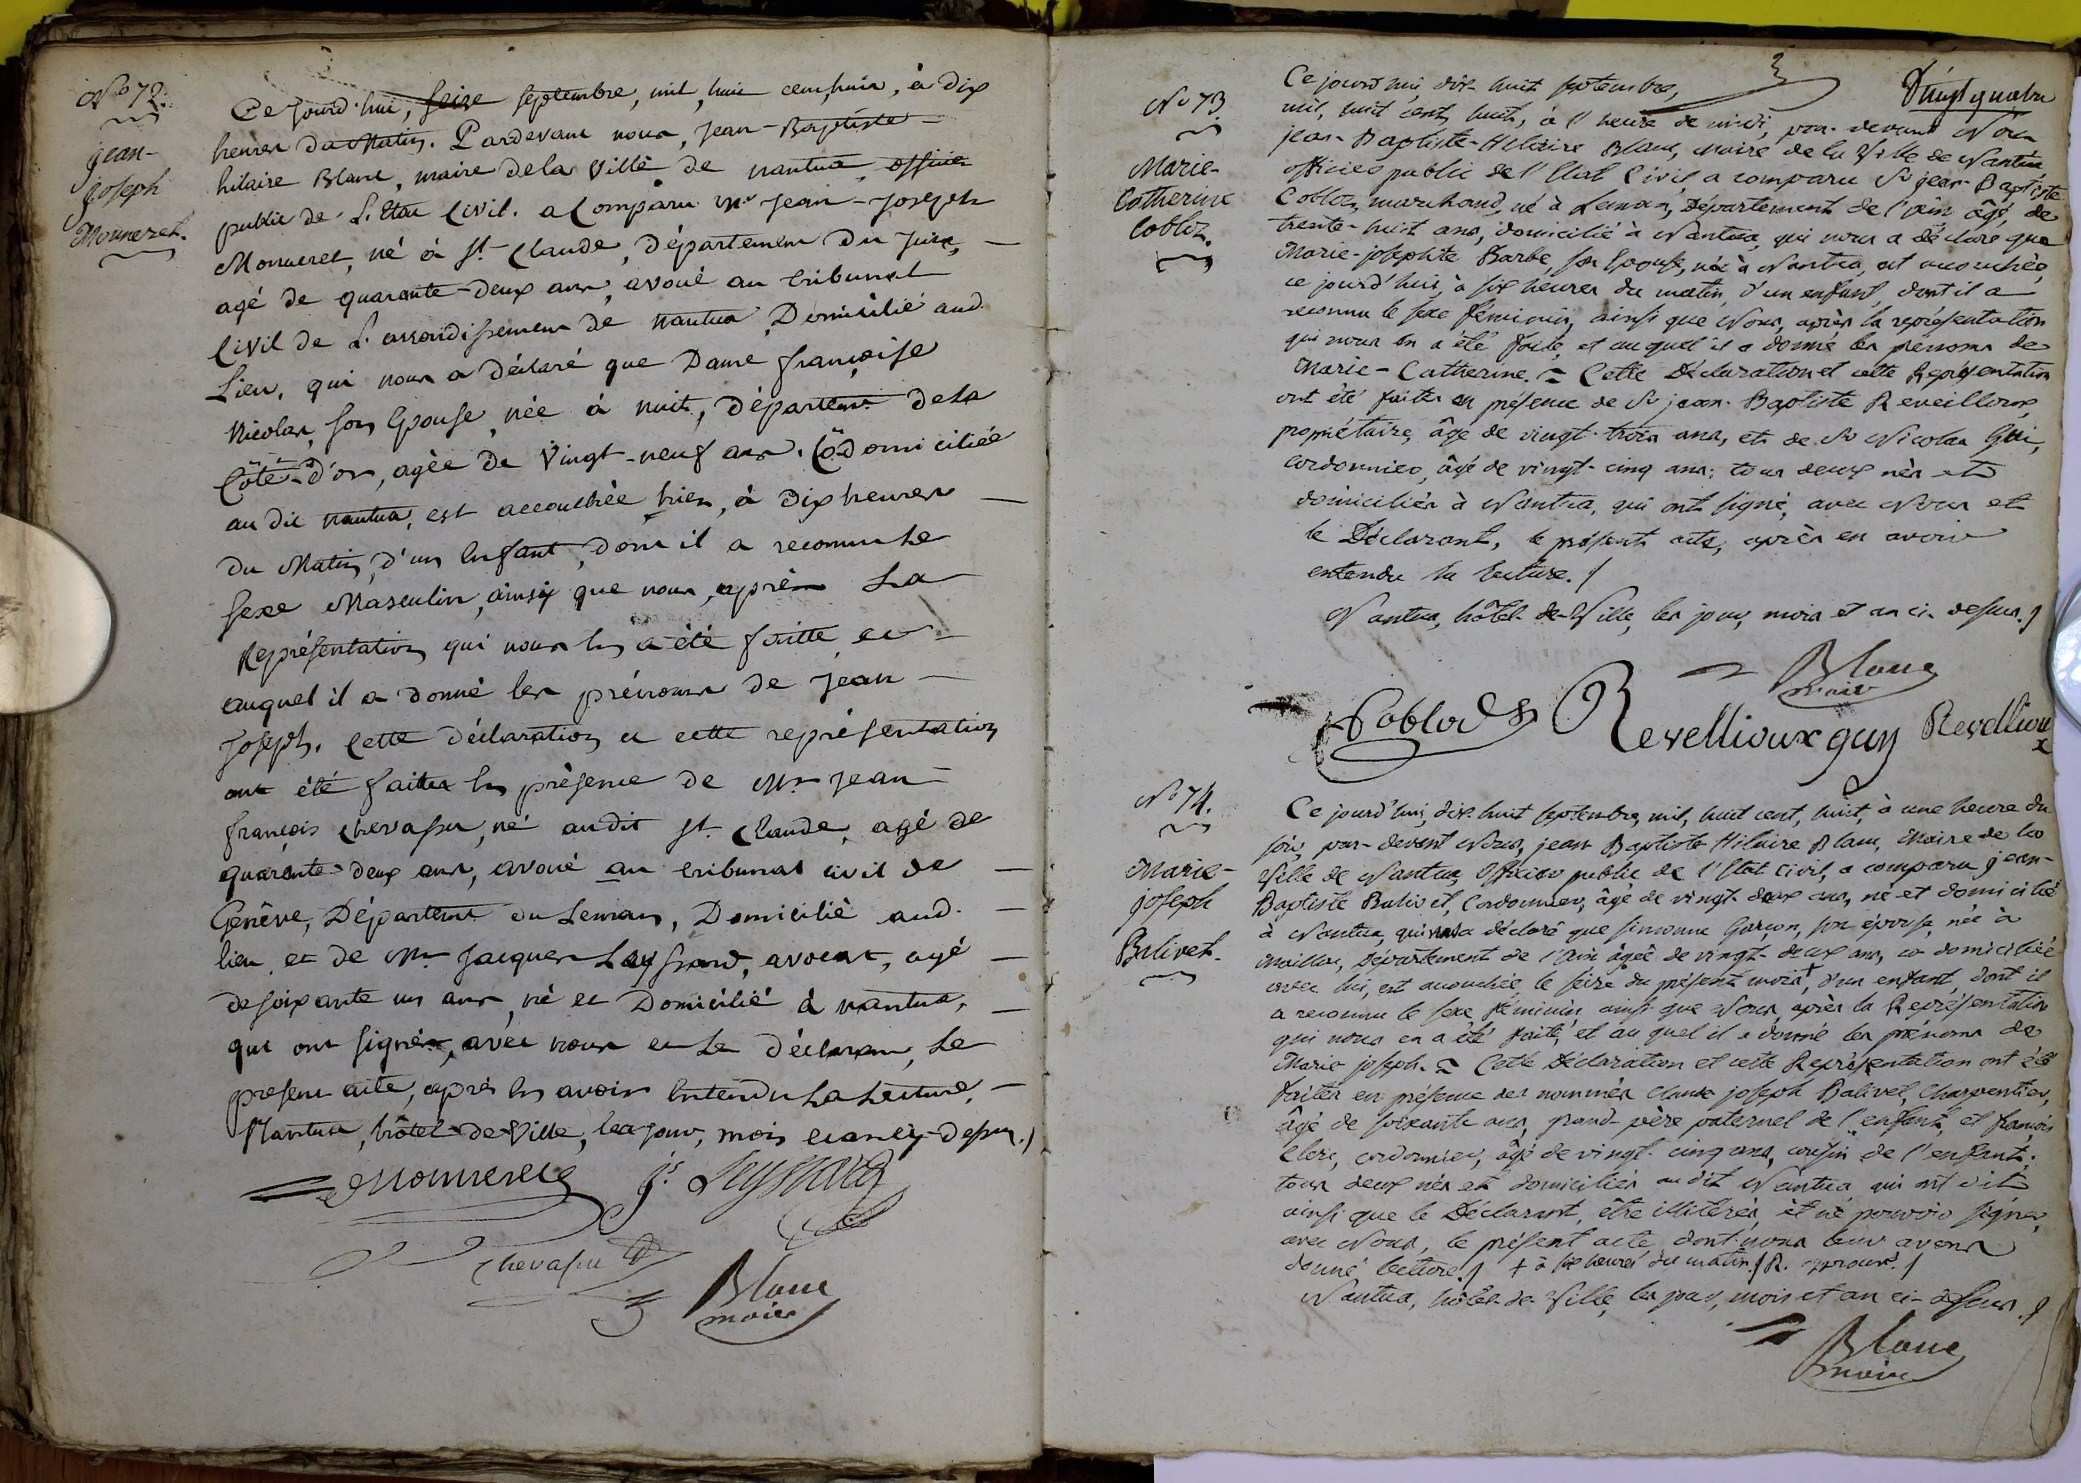 No 72.
jean-
joseph
Monneret.
Ce jourd'hui, seize septembre, mil, huit cent, huit, à dix
heures du Matin. Pardevant nous, jean-Baptiste-
hilaire Blanc, maire de la Ville de nantua, officier
public de L'Etat Civil. a Comparu mr jean-joseph
Monneret, né à st Claude, Département Du jura,
agé de quarante-deux ans, avoué au tribunal
Civil de L'arrondissement de nantua, Domicilié aud.
Lieu, qui nous a déclaré que Dame françoise
Nicolas, son Epouse, née à nuits, département dela
Côte-d'or, agée de Vingt-neuf ans, Codomiciliée
au dit nantua, est accouchée hier, à Dix heures
du Matin, d'un Enfant, dont il a reconnu Le
sexe Masculin, ainsy que nous, après La
Représentation qui nous En a été faitte, et
auquel il a donné les prénoms de jean-
joseph. Cette déclaration et cette représentation
ont été faites En présence de Mr jean-
françois Chevassu, né audit st. Claude, agé de
quarante deux ans, avoué au tribunal civil de
Genève, Département du Leman, Domicilié aud.
lieu, et de Mr Jacques Leyssard, avocat, agé
de soixante un ans, né et Domicilié à nantua,
qui ont signés, avec nous et Le déclarant, Le
present acte, après En avoir Entendu La Lecture.
Nantua, hôtel-de-Ville, les jour, mois et an ci-dessus./
Monneret js. Leyssard
Chevassu
Blanc
maire
Vingt quatre
No 73
Marie-
Catherine
Cobloz.
Ce jourd'hui, dix-huit septembre,
mil, huit cent, huit, à l'heure de midi, par-devant Nous
jean-Baptiste-Hilaire Blanc, Maire de la Ville de Nantua,
officier public de l'Etat Civil, a comparu Sr jean-Baptiste
Cobloz, marchand, né à Leman, département de l'ain, âgé de
trente-huit ans, domicilié à Nantua, qui nous a déclaré que
Marie-josephte Barbe, son Epouse, née à Nantua, est accouchée,
ce jourd'hui, à six heures du matin, d'un enfant, dont il a
reconnu le sexe féminin, ainsi que Nous, après la représentation
qui nous en a été faite, et auquel il a donné les prénoms de
Marie-Catherine. = Cette Déclaration et cette Représentation
ont été faites en présence de Sr jean-Baptiste Reveilloux,
propriétaire, âgé de vingt-trois ans, et de Sr Nicolas Gui,
cordonnier, âgé de vingt-cinq ans; tous deux nés et
domiciliés à Nantua, qui ont signé, avec Nous et
le Déclarant, le présent acte, après en avoir
entendu la lecture./
Nantua, hôtel-de-Ville, les jour, mois et an ci-dessus./
Blanc
maire
Coblod Revellioux guy Revelliou
x
No 74.
Marie-
joseph
Balivet.
Ce jourd'hui, dix-huit septembre, mil, huit cent, huit, à une heure du
soir, par-devant Nous, jean-Baptiste-Hilaire Blanc, Maire de la
Ville de Nantua, Officier public de l'Etat Civil, a comparu jean-
Baptiste Balivet, Cordonnier, âgé de vingt-deux ans, né et domicilié
à Nantua, qui nous a déclaré que simonne Garçon, son épouse, née à
Maillac, Département de l'ain, âgée de vingt-deux ans, co-domiciliée
avec lui, est accouchée le seize du présent mois +, d'un enfant, dont il
a reconnu le sexe féminin, ainsi que Nous, après la Représentation
qui nous en a été faite, et au quel il a donné les prénoms de
Marie joseph. = Cette Déclaration et cette Représentation ont été
faites en présence des nommés Claude joseph Balivet, Charpentier,
âgé de soixante ans, grand-père paternel de l'enfant, et françois
Clerc, cordonnier, âgé de vingt-cinq ans, cousin de l'enfant;
tous deux nés et domiciliés audit Nantua qui ont dit,
ainsi que le Déclarant, être illitérés, et ne pouvoir signer,
avec Nous, le présent acte, dont nous leur avons
donné lecture./ + à six heures du matin./ R. approuvé./
Nantua, hôtel-de-Ville, les jour, mois et an ci-dessus./
Blanc
maire